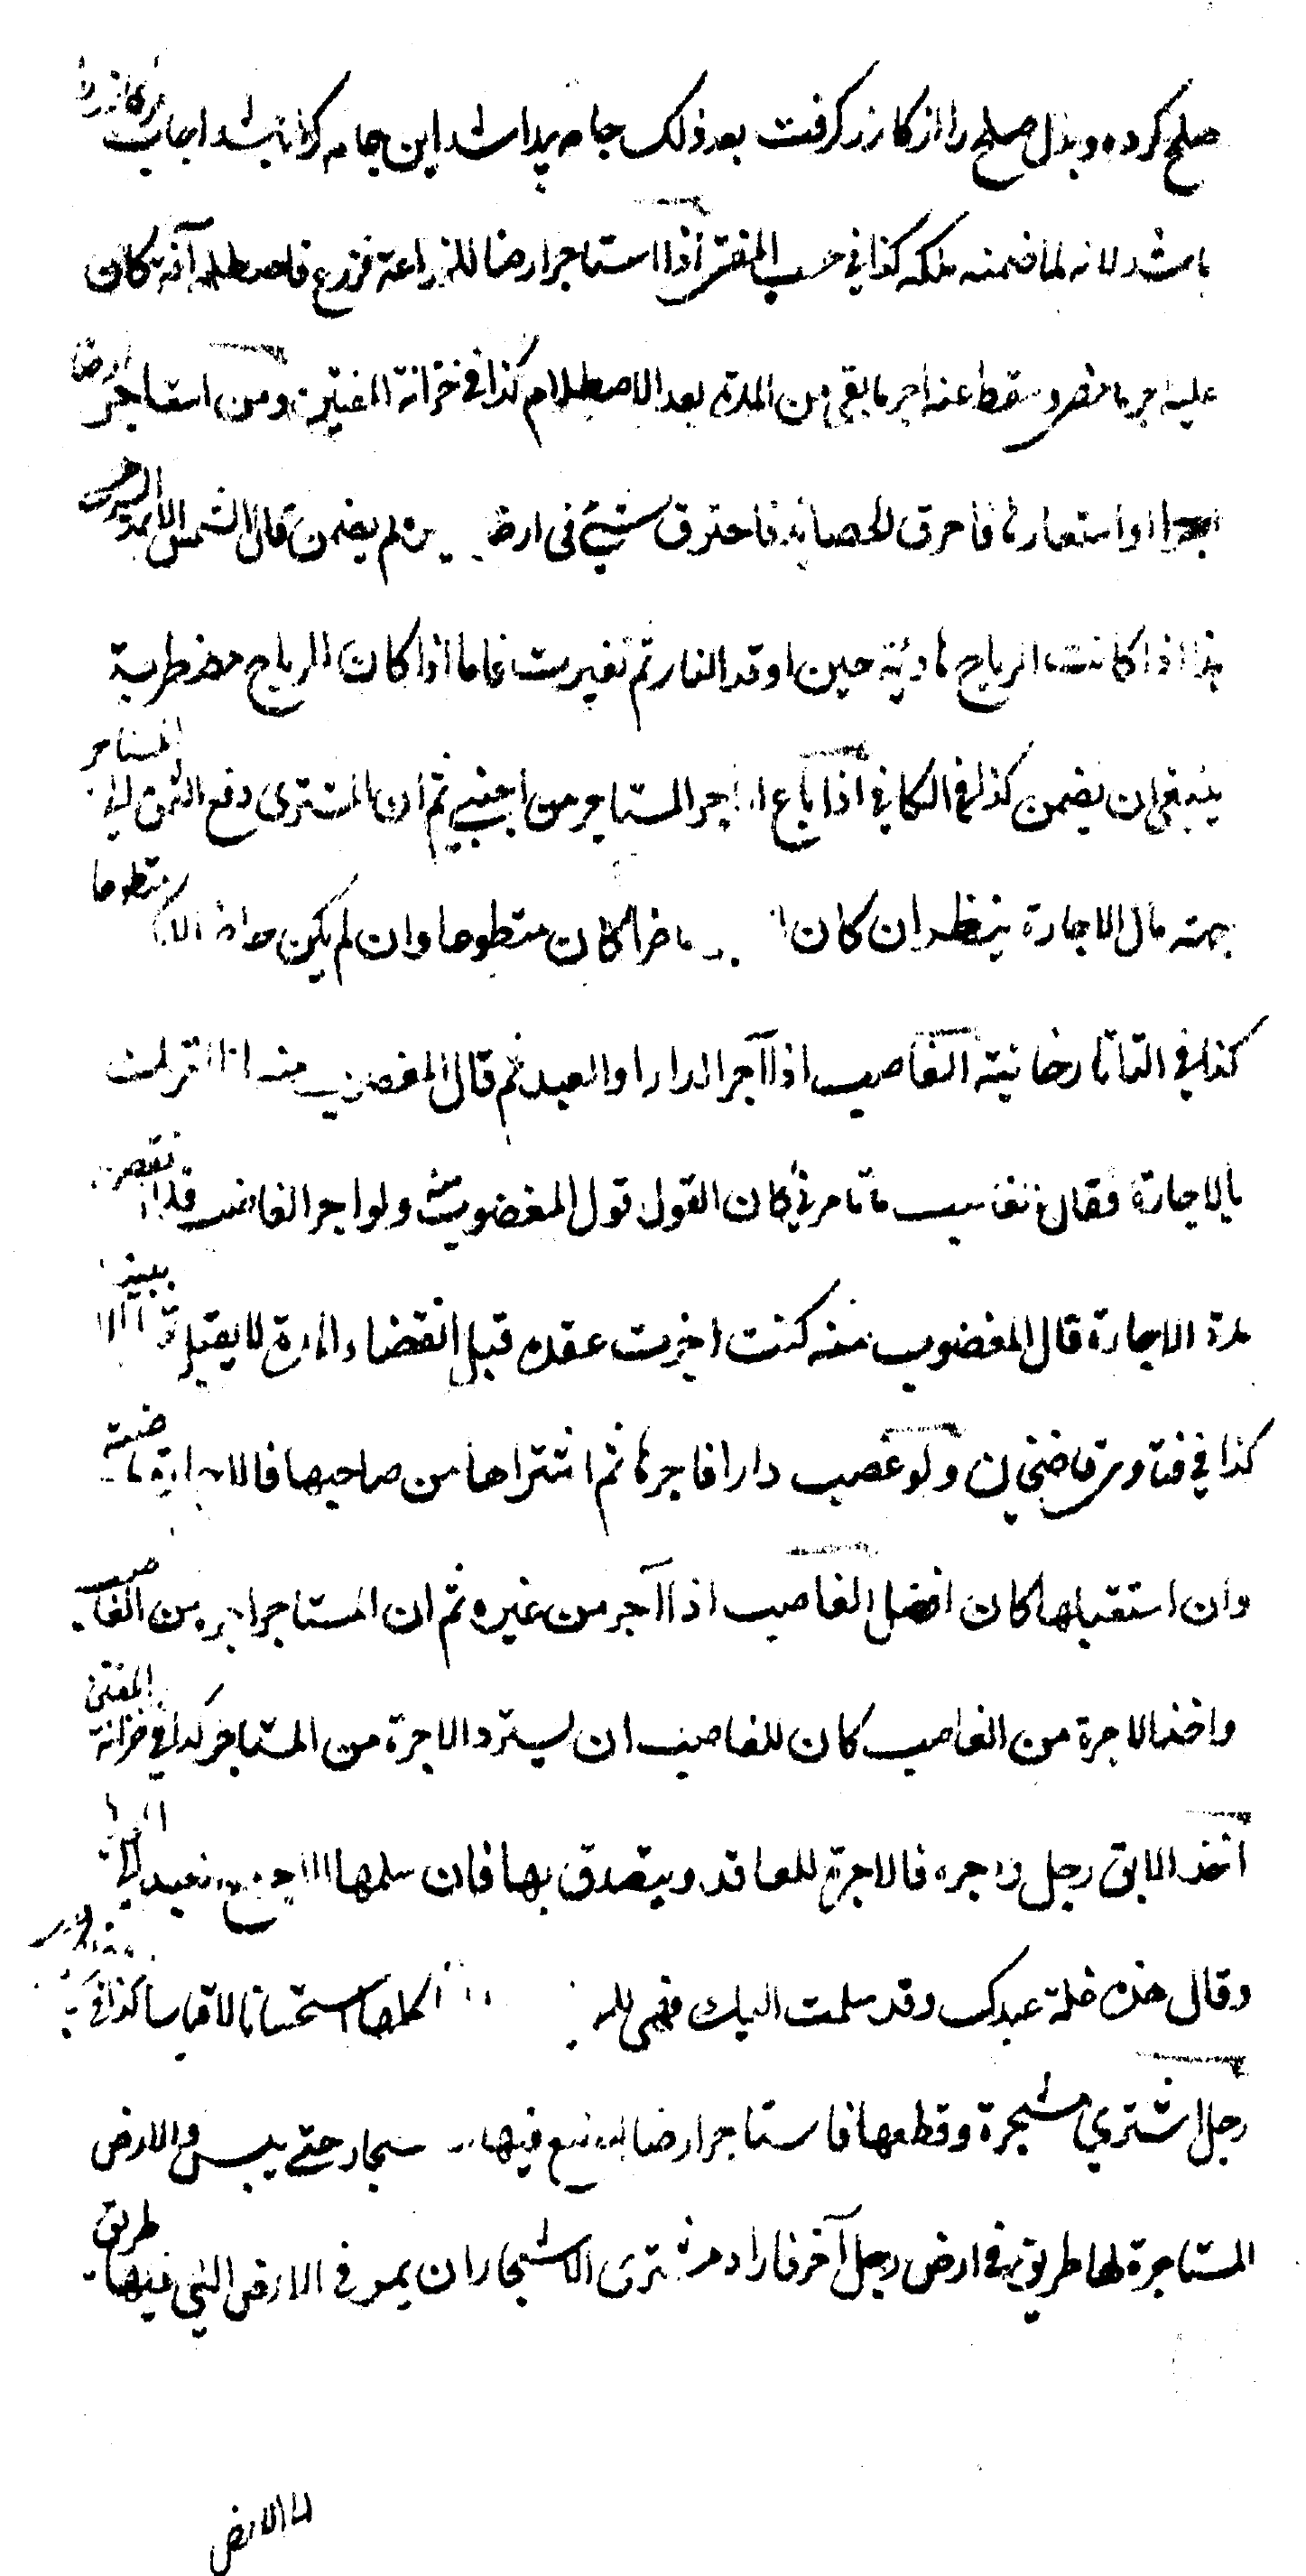 صلح کرده و بدل صلح را از کازر گرفت بعد ذلک جامه پیدا شد این جامه کرا باشد اجاب کازر را
باشد لانه لما ضمنه ملکه کذا فی حسب المفتی اذا استاجر ارضا للزراعة فزرع فاصطلمه آفة کان
علیه اجر ما مضی و سقط عنه اجر ما بقی من المدة بعد الاصطلام کذا فی خزانة المفتین ومن استاجر ارضا
او استعارها فاحرق الحصائد فاحترق شیئ فی ارض لم یضمن قال الشمس الائمة السرخسی
هذا اذا کانت الریاح هادئة حین اوقد النار ثم تغیرت فاما اذا کان الریاح مضطربة
ینبغی ان یضمن کذا فی الکافی اذا باع اجر المستاجر من اجنبی ثم ان المشتری دفع الثمن الی المستاجر
جهته مال الاجارة ینظر ان کان حاضرا کان متطوعا وان لم یکن متطوعا
کذا فی التاتارخانیة الغاصب اذا آجر الدار او العبد ثم قال المغصوب منه انا امرتک
بالاجارة فقال الغاصب ما تامرنی کان القول قول المغصوب منه ولو اجر الغاصب
مدة الاجارة قال المغصوب منه کنت اخبرت عقده قبل انقضاء المدة لا یقبل قوله الا ببینة
کذا فی فتاوی قاضیخان ولو غصب دارا فاجرها ثم اشتراها من صاحبها فالاجارة ماضیة
وان استقبلها کان افضل الغاصب اذا آجر من غیره ثم ان المستاجر اجره من الغاصب
واخذ الاجرة من الغاصب کان للغاصب ان یسترد الاجرة من المستاجر کذا فی خزانة المفتی
اخذ الابق رجل واجره فالاجرة للعاقد ویتصدق بها فان سلمها مع العبد الی
وقال هذه غلة عبدک وقد سلمت الیک فهی للمولی اکلها استحسانا لا قیاسا کذا فی
رجل اشتری شجرة وقطعها فاستاجر ارضا لیضع فیها الاشجار حتی ییبس والارض
المستاجرة لها طریق فی ارض رجل آخر فاراد مشتری الاشجار ان یمر فی الارض التی فیها طریق
الارض